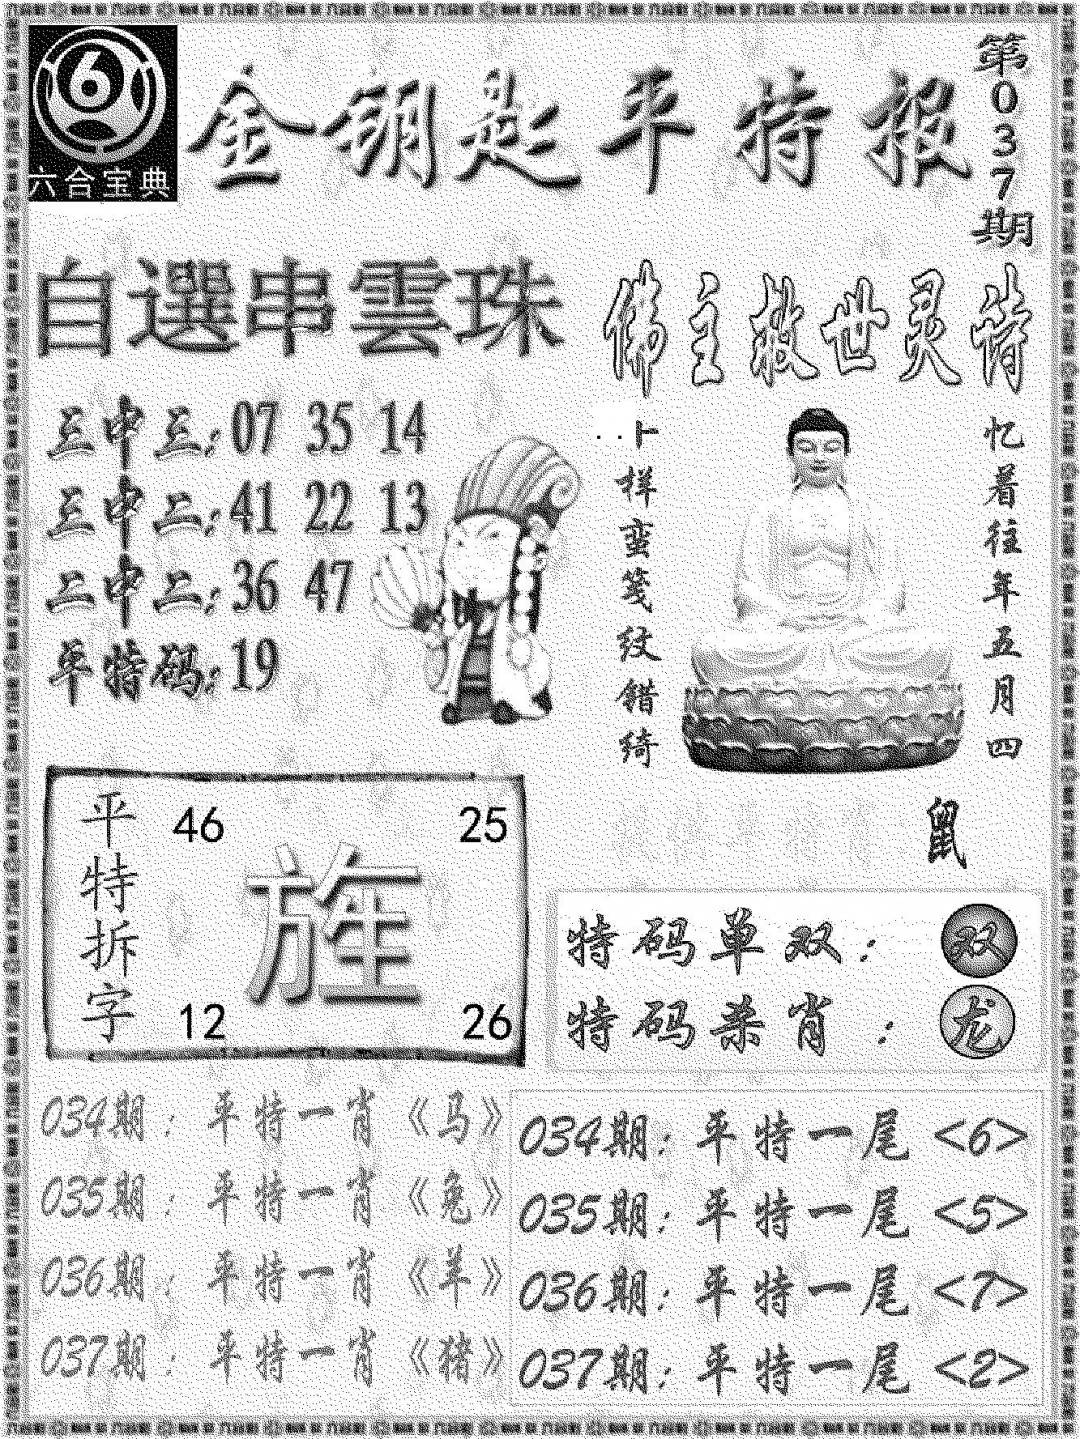 六合宝典
金钥匙平特报
第037期
自選串雲珠
三中三:07 35 14
三中二:41 22 13
二中二:36 47
平特码:19
佛主救世灵诗
忆着往年五月四
样蛮笺纹错绮
鼠
平特拆字
46 25
旌
12 26
特码单双: 双
特码杀肖: 龙
034期: 平特一肖《马》
035期: 平特一肖《兔》
036期: 平特一肖《羊》
037期: 平特一肖《猪》
034期: 平特一尾<6>
035期: 平特一尾<5>
036期: 平特一尾<7>
037期: 平特一尾<2>